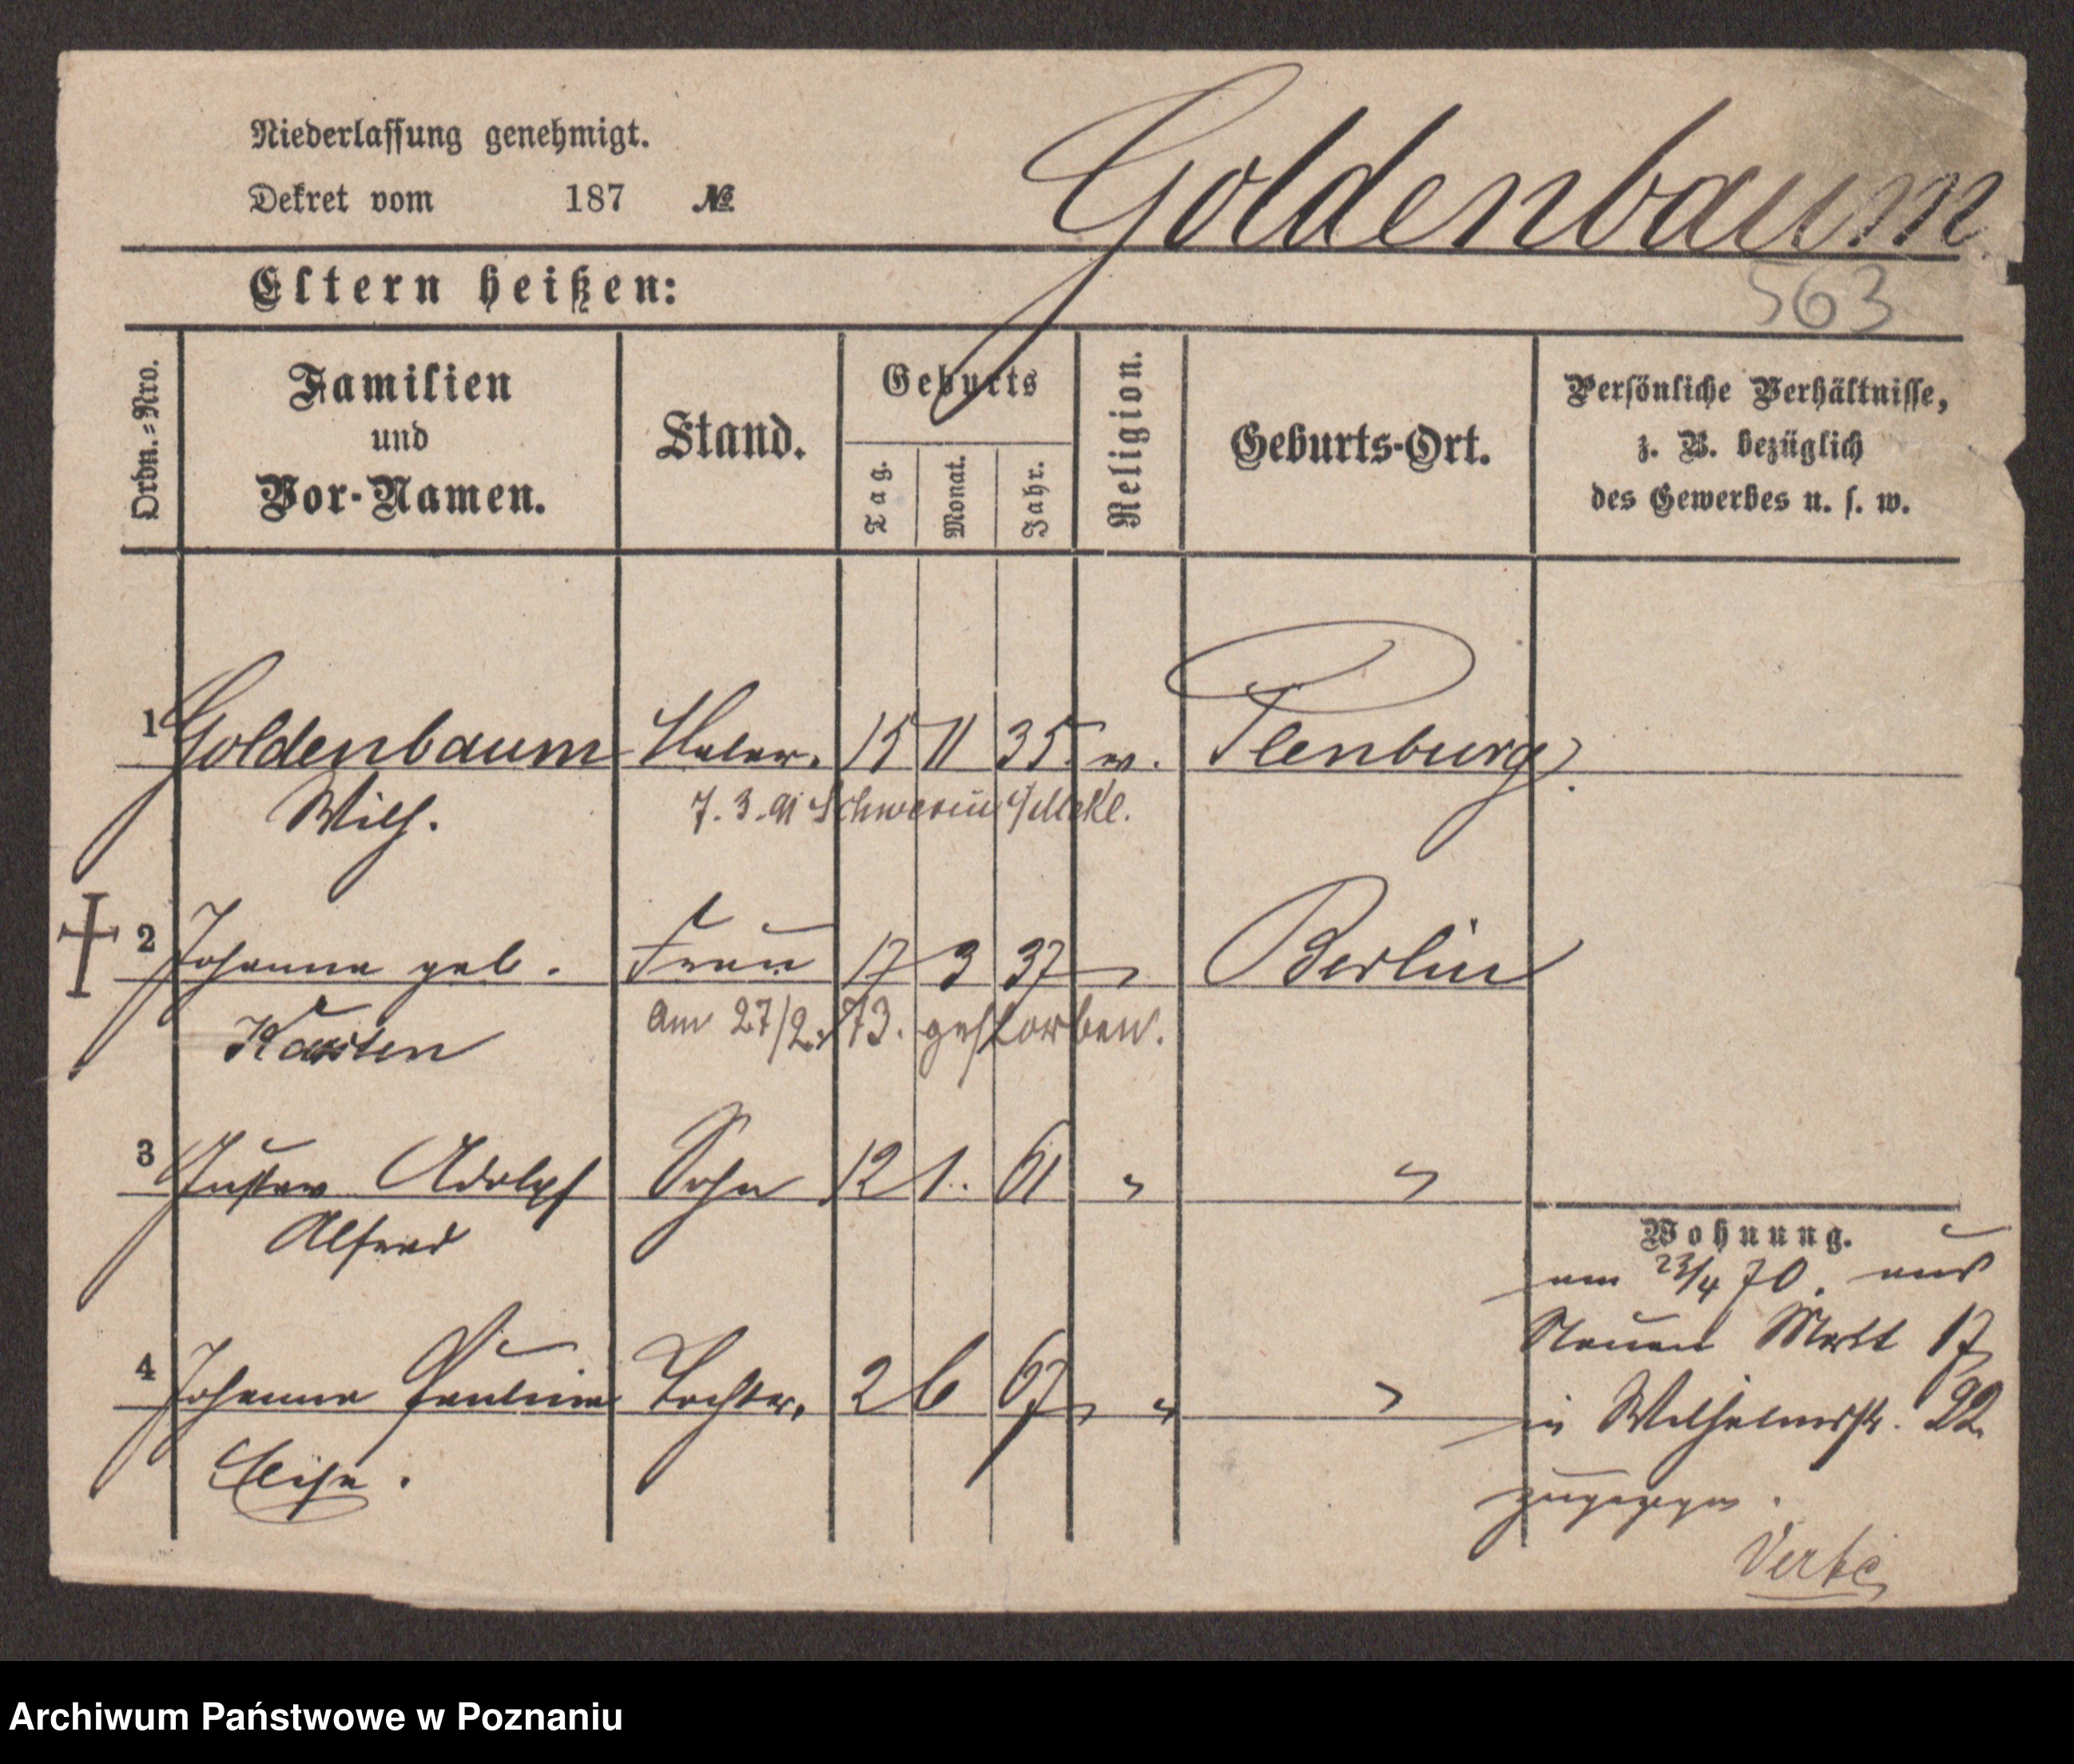 Niederlassung genehmigt.
Dekret vom 187 №
Goldenbaum
563
Eltern heißen:
Ordn.=Nro.
Familien
und
Vor-Namen.
Stand.
Geburts
Tag.
Monat.
Jahr.
Religion.
Geburts-Ort.
Persönliche Verhältnisse,
z. B. bezüglich
des Gewerbes u. s. w.
1 Goldenbaum Maler. 15 11 35.
Wilh.
7. 3. 91 Schwerin i/Meckl.
2 Johanna geb. Frau 17 3 37 " Berlin
Karsten
am 27/2. 73. gestorben.
3 Gustav Adolph Sohn 12 1. 61 " "
Alfred
4 Johanna Pauline Tochter, 2 6 67 " "
Elise.
Wohnung.
am 23/4 70. aus
Neuen Markt 17
in Wilhelmsstr. 22
zugezogen.